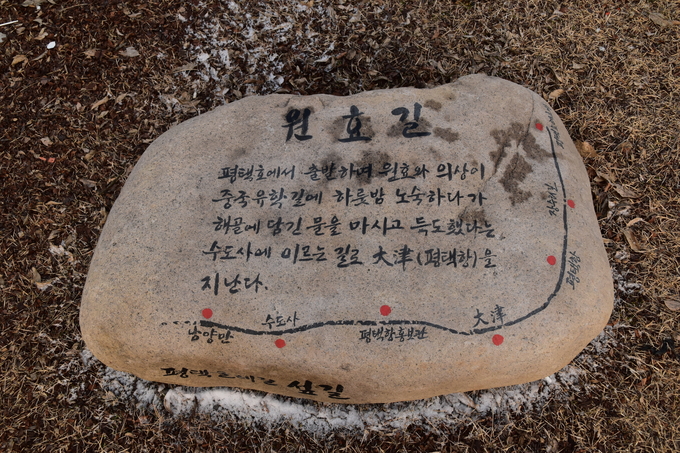 원효길
평택호에서 출발하며 원효와 의상이
중국유학길에 하룻밤 노숙하다가
해골에 담긴 물을 마시고 득도했다는
수도사에 이르는 길로 大津(평택항)을
지난다.
평택항
수도사
大津
남양만
평택항홍보관
평택 섶길